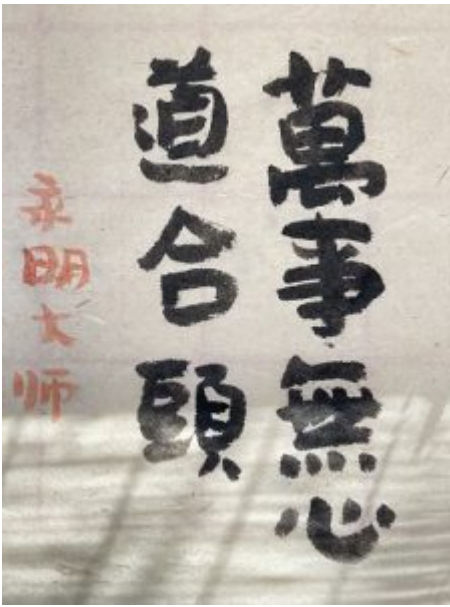 萬事無心
道合頭
永明大师